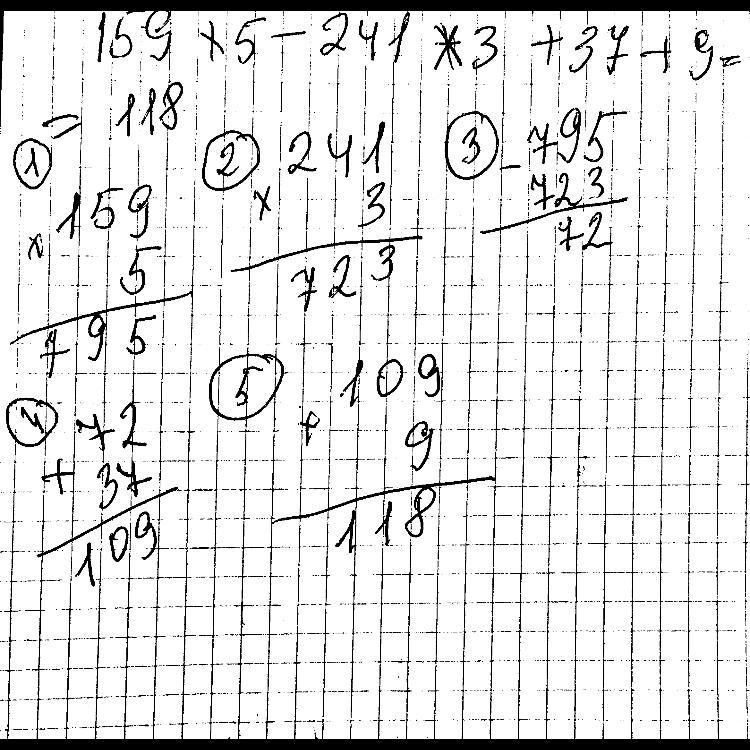 159 × 5 - 241 * 3 + 37 + 9 =
= 118
① 
× 159
5
795
② 
× 241
3
723
③ 
- 795
723
72
④ 
+ 72
37
109
⑤ 
+ 109
9
118